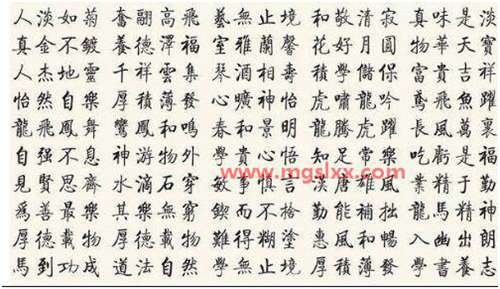 人淡如菊 奮翮高飛 藝無止境 和敬清寂 真味是淡
真金不鍍 養德澤福 室雅蘭馨 花好月圓 物華天寶
人杰地靈 千祥雲集 琴酒相壽 學儲保 富貴吉祥
怡然自樂 厚積薄發 心曠神怡 虎嘯龍吟 鳶飛魚躍
龍飛鳳舞 鸞鳳和鳴 春和景明 龍騰虎躍 長風萬裏
自強不息 神游物外 學貴心悟 知足常樂 吃虧是福
www.mgslxx.com
見賢思齊 水滴石穿 敏事慎言 漢唐雄風 業精于勤
為善最樂 其樂無窮 鍥而不捨 勤能補拙 龍馬精神
厚德載物 厚德載物 難得糊塗 惠風和暢 入幽出朗
馬到功成 道法自然 學無止境 厚積薄發 學書養志